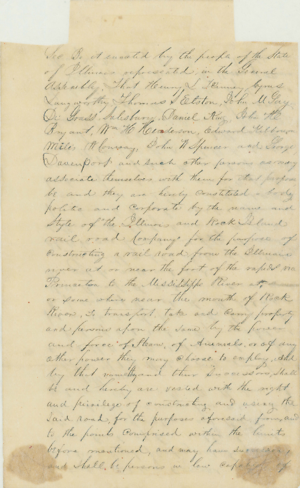 Sec 1. Be it enacted by the people of the State
of Illinois represented in the General
Assembly, That Henry
Langworthy, Thomas Elston, John M Gay
De Gould Salsbury, Daniel King, John H
Bryant, Wm H Henderson, Edward
Miles W Conway, John W Spencer and George
Davenport and such other persons as may
associate themselves with them for that purpose
be and they are hereby constituted a body
politic and corporate by the name and
Style of "the Illinois and Rock Island
rail road Company" for the purpose of
constructing a rail road from the Illinois
river at or near the foot of the rapids
to the Mississippi River at
or some where near the mouth of Rock
River, to transport, take and carry property
and persons upon the same by the power
and force of Steam, of Animals, or of any
other power they may choose to employ, and
by that name they and their Successors, shall
be and hereby are vested with the right
and privilege of constructing and using the
said road, for the purposes aforesaid from and
to the points comprised within the limits
before mentioned, and may have succession
and shall be persons in law capable of